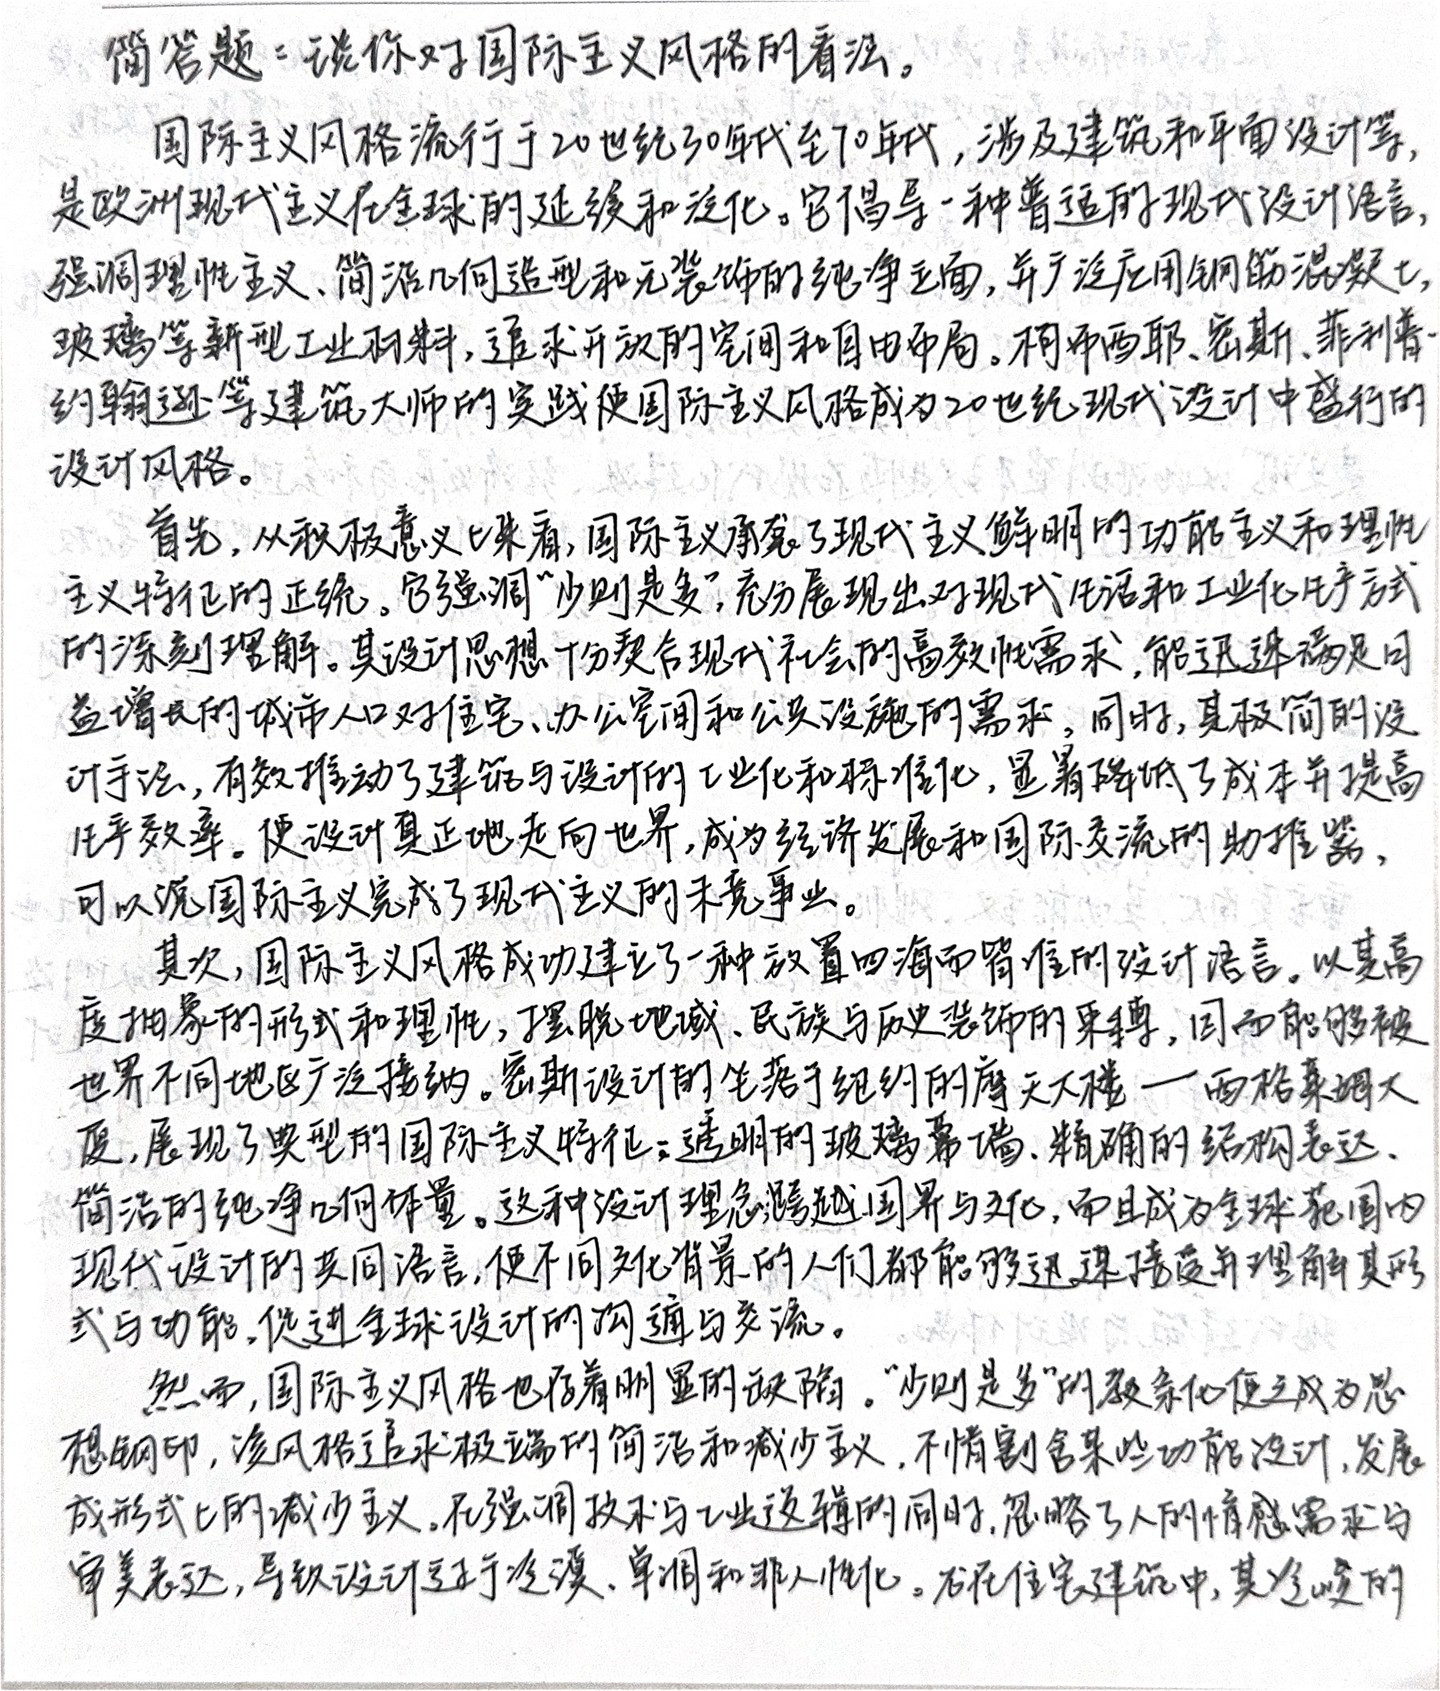 简答题：谈你对国际主义风格的看法。
国际主义风格流行于20世纪30年代至70年代，涉及建筑和平面设计等，
是欧洲现代主义在全球的延续和泛化。它倡导一种普适的现代设计语言，
强调理性主义、简洁几何造型和无装饰的纯净立面，并广泛应用钢筋混凝土，
玻璃等新型工业材料，追求开放的空间和自由布局。柯布西耶、密斯、菲利普·
约翰逊等建筑大师的实践使国际主义风格成为20世纪现代设计中盛行的
设计风格。
首先，从积极意义上来看，国际主义承袭了现代主义鲜明的功能主义和理性
主义特征的正统。它强调“少则是多”，充分展现出对现代生活和工业化生产方式
的深刻理解。其设计思想十分契合现代社会的高效性需求，能迅速满足日
益增长的城市人口对住宅、办公空间和公共设施的需求，同时，其极简的设
计手法，有效推动了建筑与设计的工业化和标准化，显著降低了成本并提高
生产效率。使设计真正地走向世界，成为经济发展和国际交流的助推器，
可以说国际主义完成了现代主义的未竟事业。
其次，国际主义风格成功建立了一种放置四海而皆准的设计语言。以其高
度抽象的形式和理性，摆脱地域、民族与历史装饰的束缚，因而能够被
世界不同地区广泛接纳。密斯设计的坐落于纽约的摩天大楼—西格莱姆大
厦，展现了典型的国际主义特征：透明的玻璃幕墙、精确的结构表达、
简洁的纯净几何体量。这种设计理念跨越国界与文化，而且成为全球范围内
现代设计的共同语言，使不同文化背景的人们都能够迅速接受并理解其形
式与功能，促进全球设计的沟通与交流。
然而，国际主义风格也存着明显的缺陷。“少则是多”的教条化使之成为思
想钢印，该风格追求极端的简洁和减少主义，不惜割舍某些功能设计，发展
成形式上的减少主义。在强调技术与工业逻辑的同时，忽略了人的情感需求与
审美表达，导致设计过于冷漠、单调和非人性化。若在住宅建筑中，其冷峻的